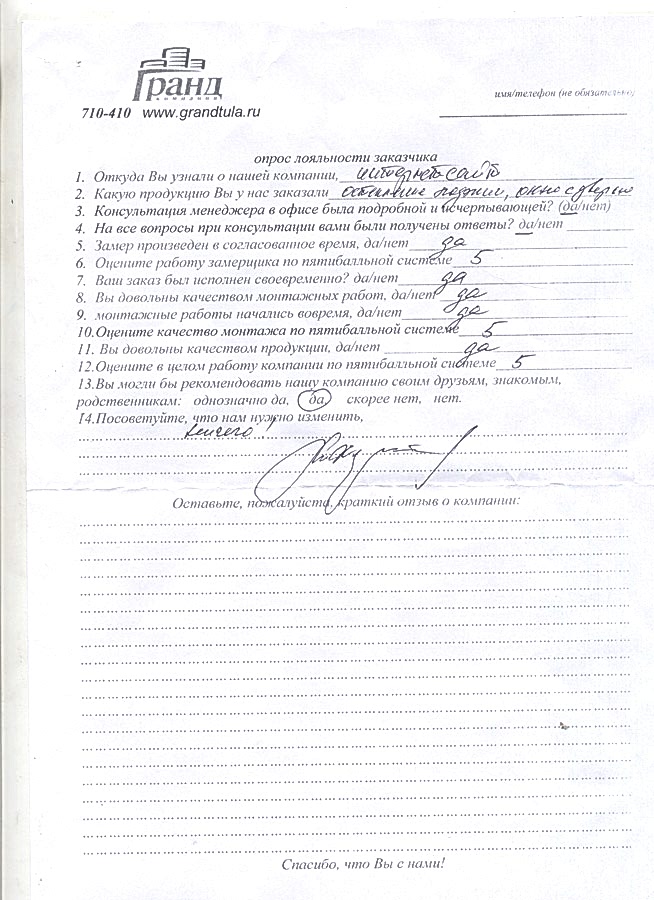 Гранд
компания
710-410 www.grandtula.ru
имя/телефон (не обязательно)
опрос лояльности заказчика
1. Откуда Вы узнали о нашей компании, интернет-сайт
2. Какую продукцию Вы у нас заказали остекление лоджии, окно с дверью
3. Консультация менеджера в офисе была подробной и исчерпывающей? (да/нет)
4. На все вопросы при консультации вами были получены ответы? да/нет
5. Замер произведен в согласованное время, да/нет да
6. Оцените работу замерщика по пятибалльной системе 5
7. Ваш заказ был исполнен своевременно? да/нет да
8. Вы довольны качеством монтажных работ, да/нет да
9. монтажные работы начались вовремя, да/нет да
10.Оцените качество монтажа по пятибалльной системе 5
11. Вы довольны качеством продукции, да/нет да
12.Оцените в целом работу компании по пятибалльной системе 5
13.Вы могли бы рекомендовать нашу компанию своим друзьям, знакомым,
родственникам: однозначно да, да, скорее нет, нет.
14.Посоветуйте, что нам нужно изменить,
ничего!
Оставьте, пожалуйста, краткий отзыв о компании:
Спасибо, что Вы с нами!